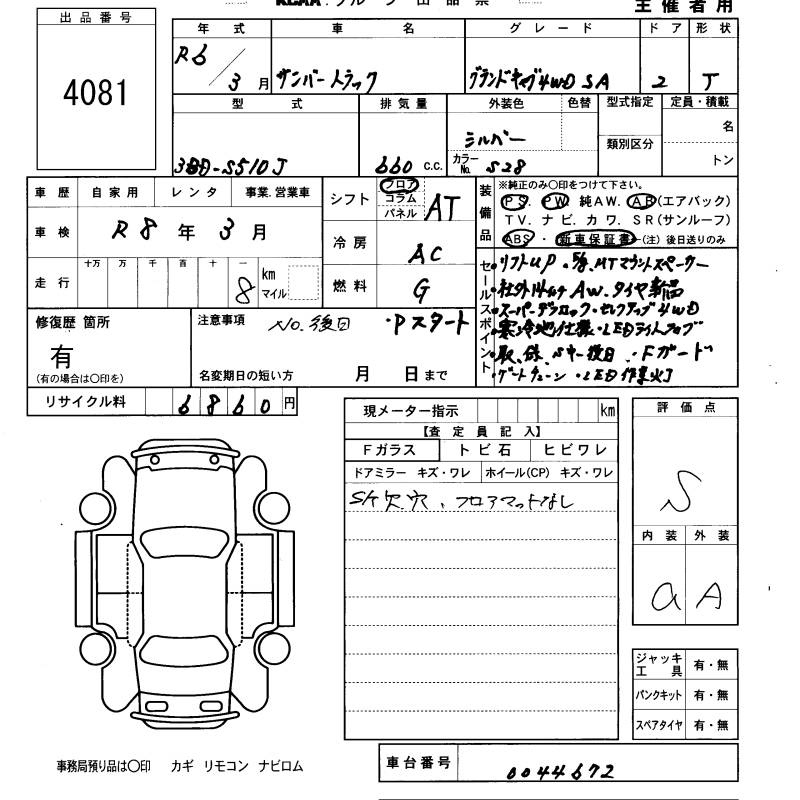 出品番号
4081
主催者用
年 式 車 名 グレード ドア 形状
R6/3月 サンバートラック グランドキャブ4WD SA 2 T
型 式 排気量 外装色 色替 型式指定 定員・積載
シルバー 名
類別区分
3BD-S510J 660 C.C. カラーNo. S28 トン
車歴 自家用 レンタ 事業.営業車
車検 R8年3月
走行 十万 万 千 百 十 一
8 km マイル
シフト フロア コラム パネル AT
冷房 AC
燃料 G
装備品 ※純正のみ〇印をつけて下さい。
PS. PW 純AW. AB(エアバック)
TV. ナビ. カワ. SR(サンルーフ)
ABS ・ 新車保証書 (注) 後日送りのみ
セールスポイント
・リフトUP
・社外14インチAW.タイヤ新品
・スーパーデフロック・セレクティブ4WD
・寒冷地仕様・LEDライトフォグ
・取、保、Sキー後日・Fガード
・ゲートチェーン・LED作業灯
修復歴 箇所
有
(有の場合は〇印を)
注意事項 No.後日 ・Pスタート
名変期日の短い方 月 日まで
リサイクル料 6860円
現メーター指示 km
【査定員記入】
Fガラス トビ石 ヒビワレ
ドアミラー キズ・ワレ ホイール(CP) キズ・ワレ
フロアマットなし
評価点
S
内装 外装
a A
ジャッキ工具 有・無
パンクキット 有・無
スペアタイヤ 有・無
事務局預り品は〇印 カギ リモコン ナビロム
車台番号 0044672